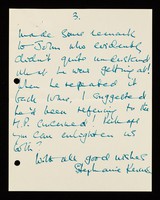 3.
made some remark
to John who evidently
didn't quite understand
what he was getting at!
When he repeated it
back home. I suggested
he'd been referring to the
M.P. concerned! Perhaps
you can enlighten us
both?
With all good wishes
Stephanie